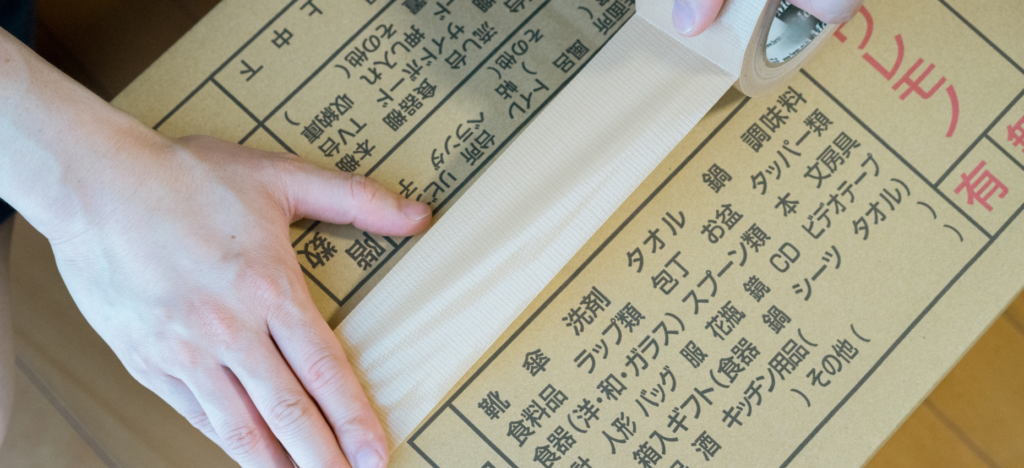 上
中
下
その他(
)
押し入れ 収納庫
サイドボード TV台
流し台 食器棚 本棚
その他(
)
風呂 ベランダ
トイレ 台所
階数
靴 傘 洗剤 タオル 鍋 調味料
食料品 ラップ類 包丁 お盆 タッパー類
食器(洋・和・ガラス) スプーン類 本 文房具
計 人形 バッグ 服 花瓶 鏡 CD ビデオテープ
箱入ギフト(食器 鍋 シーツ タオル)
酒 キッチン用品( )
) その他( )
ワレモノ
有 無